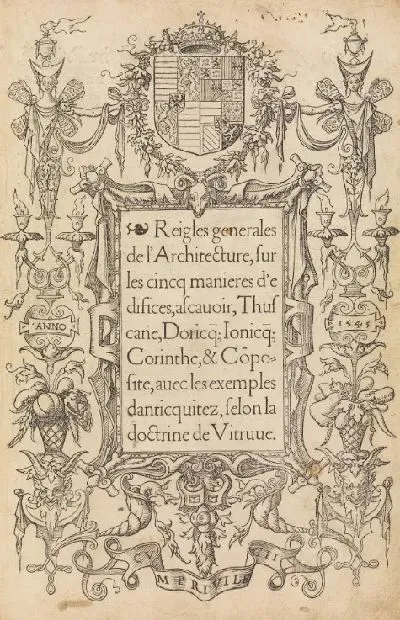 Reigles generales
de l'Architecture, sur
les cincq manieres d'e
difices, ascauoir, Thus
cane, Doricq; Ionicq;
Corinthe, & Cōpo-
site, auec les exemples
danticquitez, selon la
doctrine de Vitruue.
ANNO
1545
PRIVILE